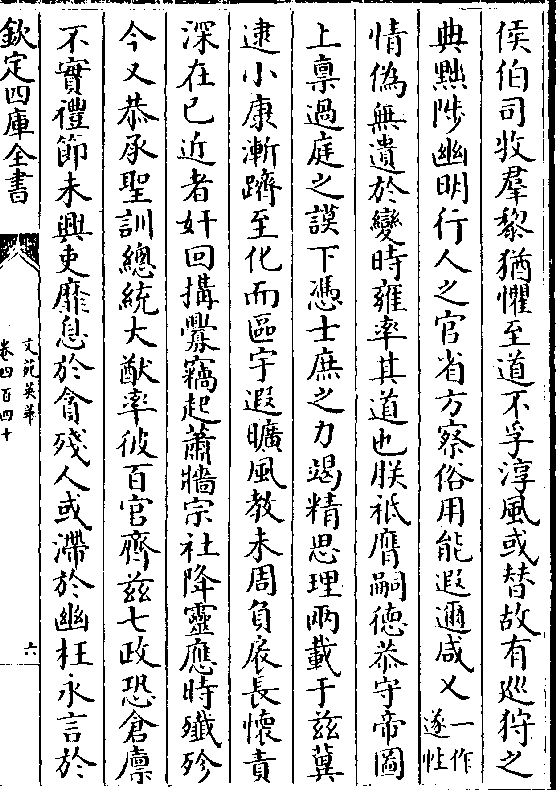 侯伯司牧羣黎猶懼至道不孚淳風或替故有廵狩之
典黜陟幽明行人之官省方察俗用能遐邇咸乂一作遂性
情偽無遺於變時雍率其道也朕祇膺嗣徳恭守帝圖
上禀過庭之謨下憑士庶之力竭精思理兩載于兹冀
逮小康漸躋至化而區宇遐曠風教未周負扆長懷責
深在己近者奸回搆釁竊起蕭牆宗社降靈應時殲殄
今又恭承聖訓總統大猷率彼百官齊兹七政恐倉廪
不實禮節未興吏靡息於貪殘人或滯於幽枉永言於
欽定四庫全書
文苑英華
卷四百四十
六